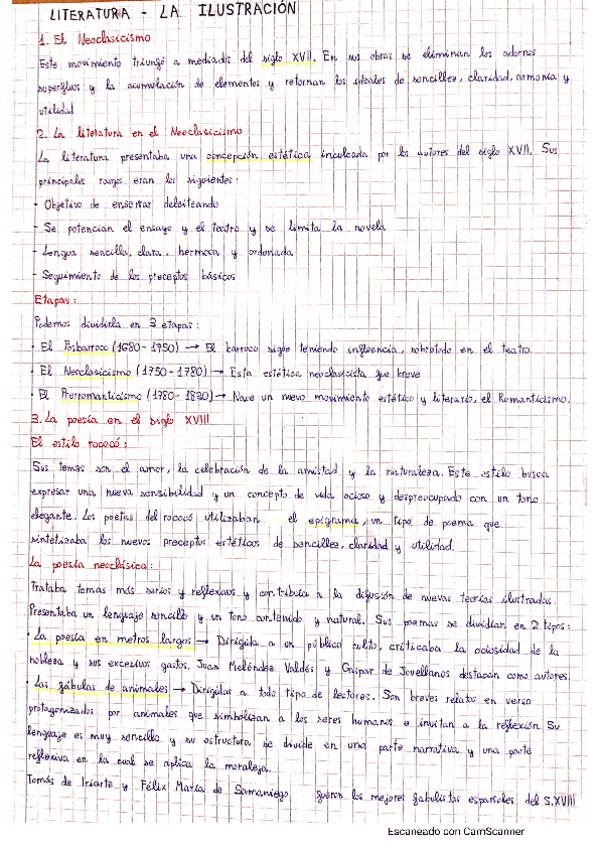 LITERATURA - LA ILUSTRACIÓN
1. El Neoclasicismo
Este movimiento triunfó a mediados del siglo XVII. En sus obras se eliminan los adornos
superfluos y la acumulación de elementos y retornan los ideales de sencillez, claridad, armonía y
utilidad
2. La literatura en el Neoclasicismo
La literatura presentaba una concepción estética inculcada por los autores del siglo XVII. Sus
principales rasgos eran los siguientes:
- Objetivo de enseñar deleitando
- Se potencian el ensayo y el teatro y se limita la novela
- Lengua sencilla, clara, hermosa y ordenada
- Seguimiento de los preceptos básicos
Etapas:
Podemos dividirla en 3 etapas:
· El Posbarroco (1680-1750) → El barroco sigue teniendo influencia, sobretodo en el teatro.
· El Neoclasicismo (1750-1780) → Esta estética neoclasicista fue breve
· El Prerromanticismo (1780-1830) → Nace un nuevo movimiento estético y literario, el Romanticismo.
3. La poesía en el siglo XVIII
El estilo rococó:
Sus temas son el amor, la celebración de la amistad y la naturaleza. Este estilo busca
expresar una nueva sensibilidad y un concepto de vida ocioso y despreocupado con un tono
elegante. Los poetas del rococó utilizaban el epigrama, un tipo de poema que
sintetizaba los nuevos preceptos estéticos de sencillez, claridad y utilidad.
La poesía neoclásica:
Trataba temas más serios y reflexivos y contribuía a la difusión de nuevas teorías ilustradas.
Presentaba un lenguaje sencillo y un tono contenido y natural. Sus poemas se dividían en 2 tipos:
· La poesía en metros largos → Dirigida a un público culto, criticaba la ociosidad de la
nobleza y sus excesivos gastos. Juan Meléndez Valdés y Gaspar de Jovellanos destacan como autores.
· Las fábulas de animales → Dirigidas a todo tipo de lectores. Son breves relatos en verso
protagonizados por animales que simbolizan a los seres humanos e invitan a la reflexión Su
lenguaje es muy sencillo y su estructura se divide en una parte narrativa y una parte
reflexiva en la cual se aplica la moraleja.
Tomás de Iriarte y Félix María de Samaniego fueron los mejores fabulistas españoles del S.XVIII
Escaneado con CamScanner